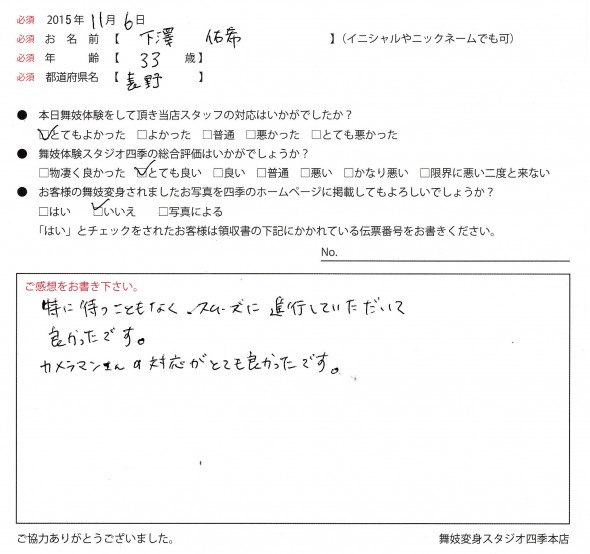 必須 2015年 11月 6日
必須 お名前【 下澤 佑希 】(イニシャルやニックネームでも可)
必須 年齢【 33 歳】
必須 都道府県名【 長野 】
● 本日舞妓体験をして頂き当店スタッフの対応はいかがでしたか？
☑とてもよかった □よかった □普通 □悪かった □とても悪かった
● 舞妓体験スタジオ四季の総合評価はいかがでしょうか？
□物凄く良かった ☑とても良い □良い □普通 □悪い □かなり悪い □限界に悪い二度と来ない
● お客様の舞妓変身されましたお写真を四季のホームページに掲載してもよろしいでしょうか？
□はい ☑いいえ □写真による
「はい」とチェックをされたお客様は領収書の下記にかかれている伝票番号をお書きください。
No.
ご感想をお書き下さい。
特に待つこともなく、スムーズに進行していただいて
良かったです。
カメラマンさんの対応がとても良かったです。
ご協力ありがとうございました。 舞妓変身スタジオ四季本店